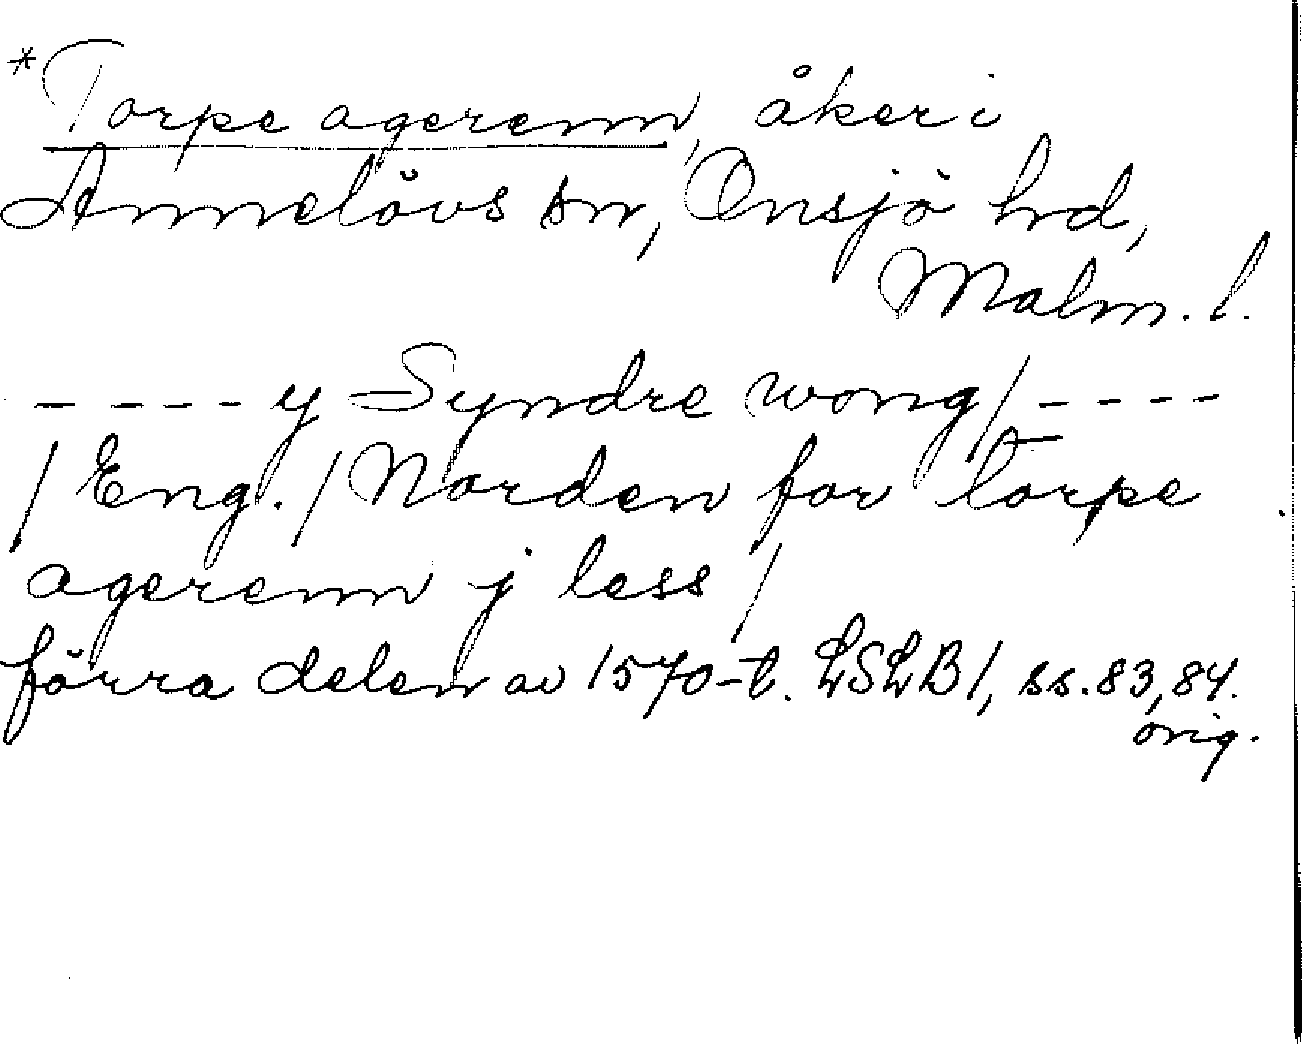 *Torpe agerenn, åker i
Annelövs sn, Onsjö hd,
Malm. l.
---- y Syndre wong/ ----
/Eng./ Norden for torpe
agerenn j less /
förra delen av 1570-t. LSLB1, ss. 83, 84.
orig.